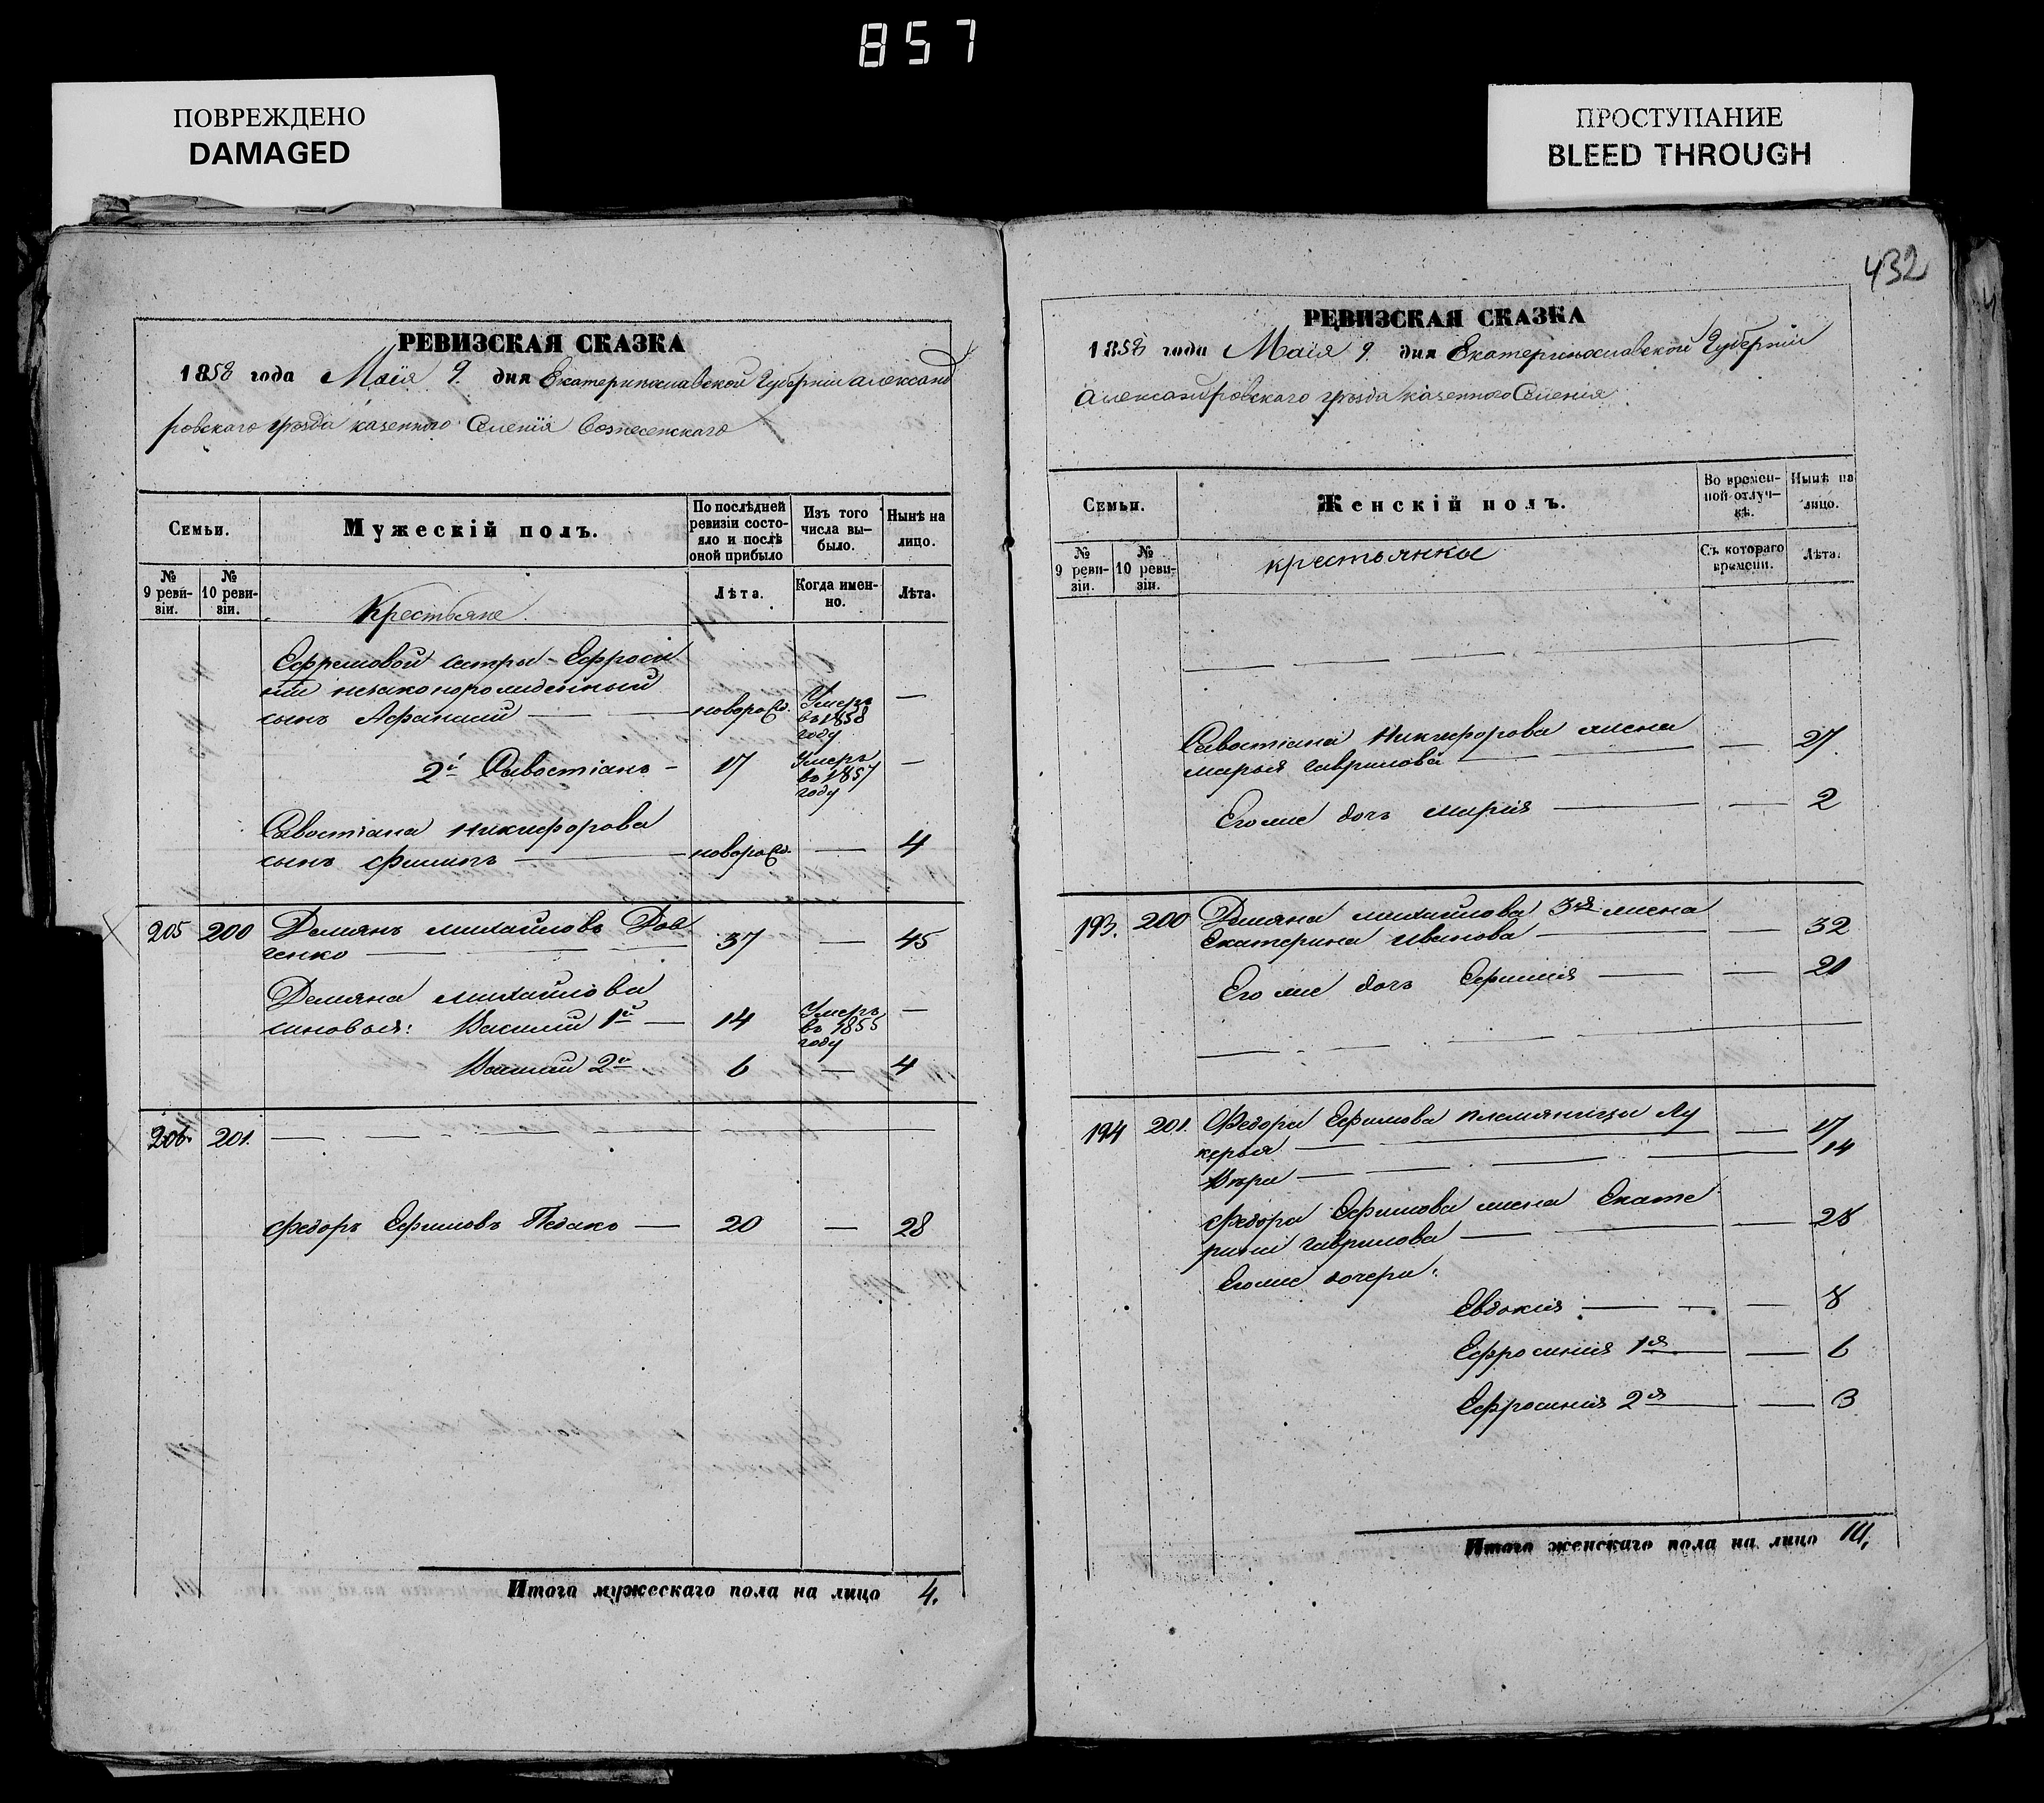 857
ПОВРЕЖДЕНО
DAMAGED
ПРОСТУПАНИЕ
BLEED THROUGH
РЕВИЗСКАЯ СКАЗКА
1858 года Маія 9. дня Екатеринославской Губерніи Александ
ровскаго уѣзда казенного Селенія Вознесенскаго
Семьи.
Мужескій полъ.
По послѣдней ревизіи состояло и послѣ оной прибыло
Изъ того числа выбыло.
Нынѣ на лицо.
№ 9 ревизіи.
№ 10 ревизіи.
Крестьяне.
Лѣта.
Когда именно.
Лѣта.
Ефремовой сестры Ефроси
ніи незаконорожденный
сынъ Афанасій — новорож. Умеръ въ 1858 году —
2й Савостіанъ — 17 Умеръ въ 1857 году —
Савостіана Никифорова
сынъ Филипъ — новорож. — 4
205 200 Демянъ Михайловъ Дов
генко — 37 — 45
Демяна Михайлова
синовья: Василій 1й — 14 Умеръ въ 1855 году —
Василій 2й 6 — 4
206. 201. — — —
Федоръ Ефимовъ Педако — 20 — 28
Итого мужескаго пола на лицо 4.
432
РЕВИЗСКАЯ СКАЗКА
1858 года Маія 9 дня Екатеринославской Губерніи
Александровскаго уѣзда казенного Селенія
Семьи.
Женскій полъ.
Во временной отлучкѣ.
Нынѣ на лицо.
№ 9 ревизіи.
№ 10 ревизіи.
крестьянки
Съ котораго времени.
Лѣта.
Савостіана Никифорова жена
марья гаврилова — — 27
Его же дочь Марія — — 2
193. 200 Демяна михайлова 3я жена
Екатерина Иванова — — 32
Его же дочь Ефимія — — 20
194 201. Федора Ефимова племяницы Лу
керья — — 17
Вѣра — — 14
Федора Ефимова жена Екате
рина гаврилова — — 28
Его же дочери:
Евдокия — — 8
Ефросинія 1я — — 6
Ефросинія 2я — — 3
Итого женскаго пола на лицо 10.